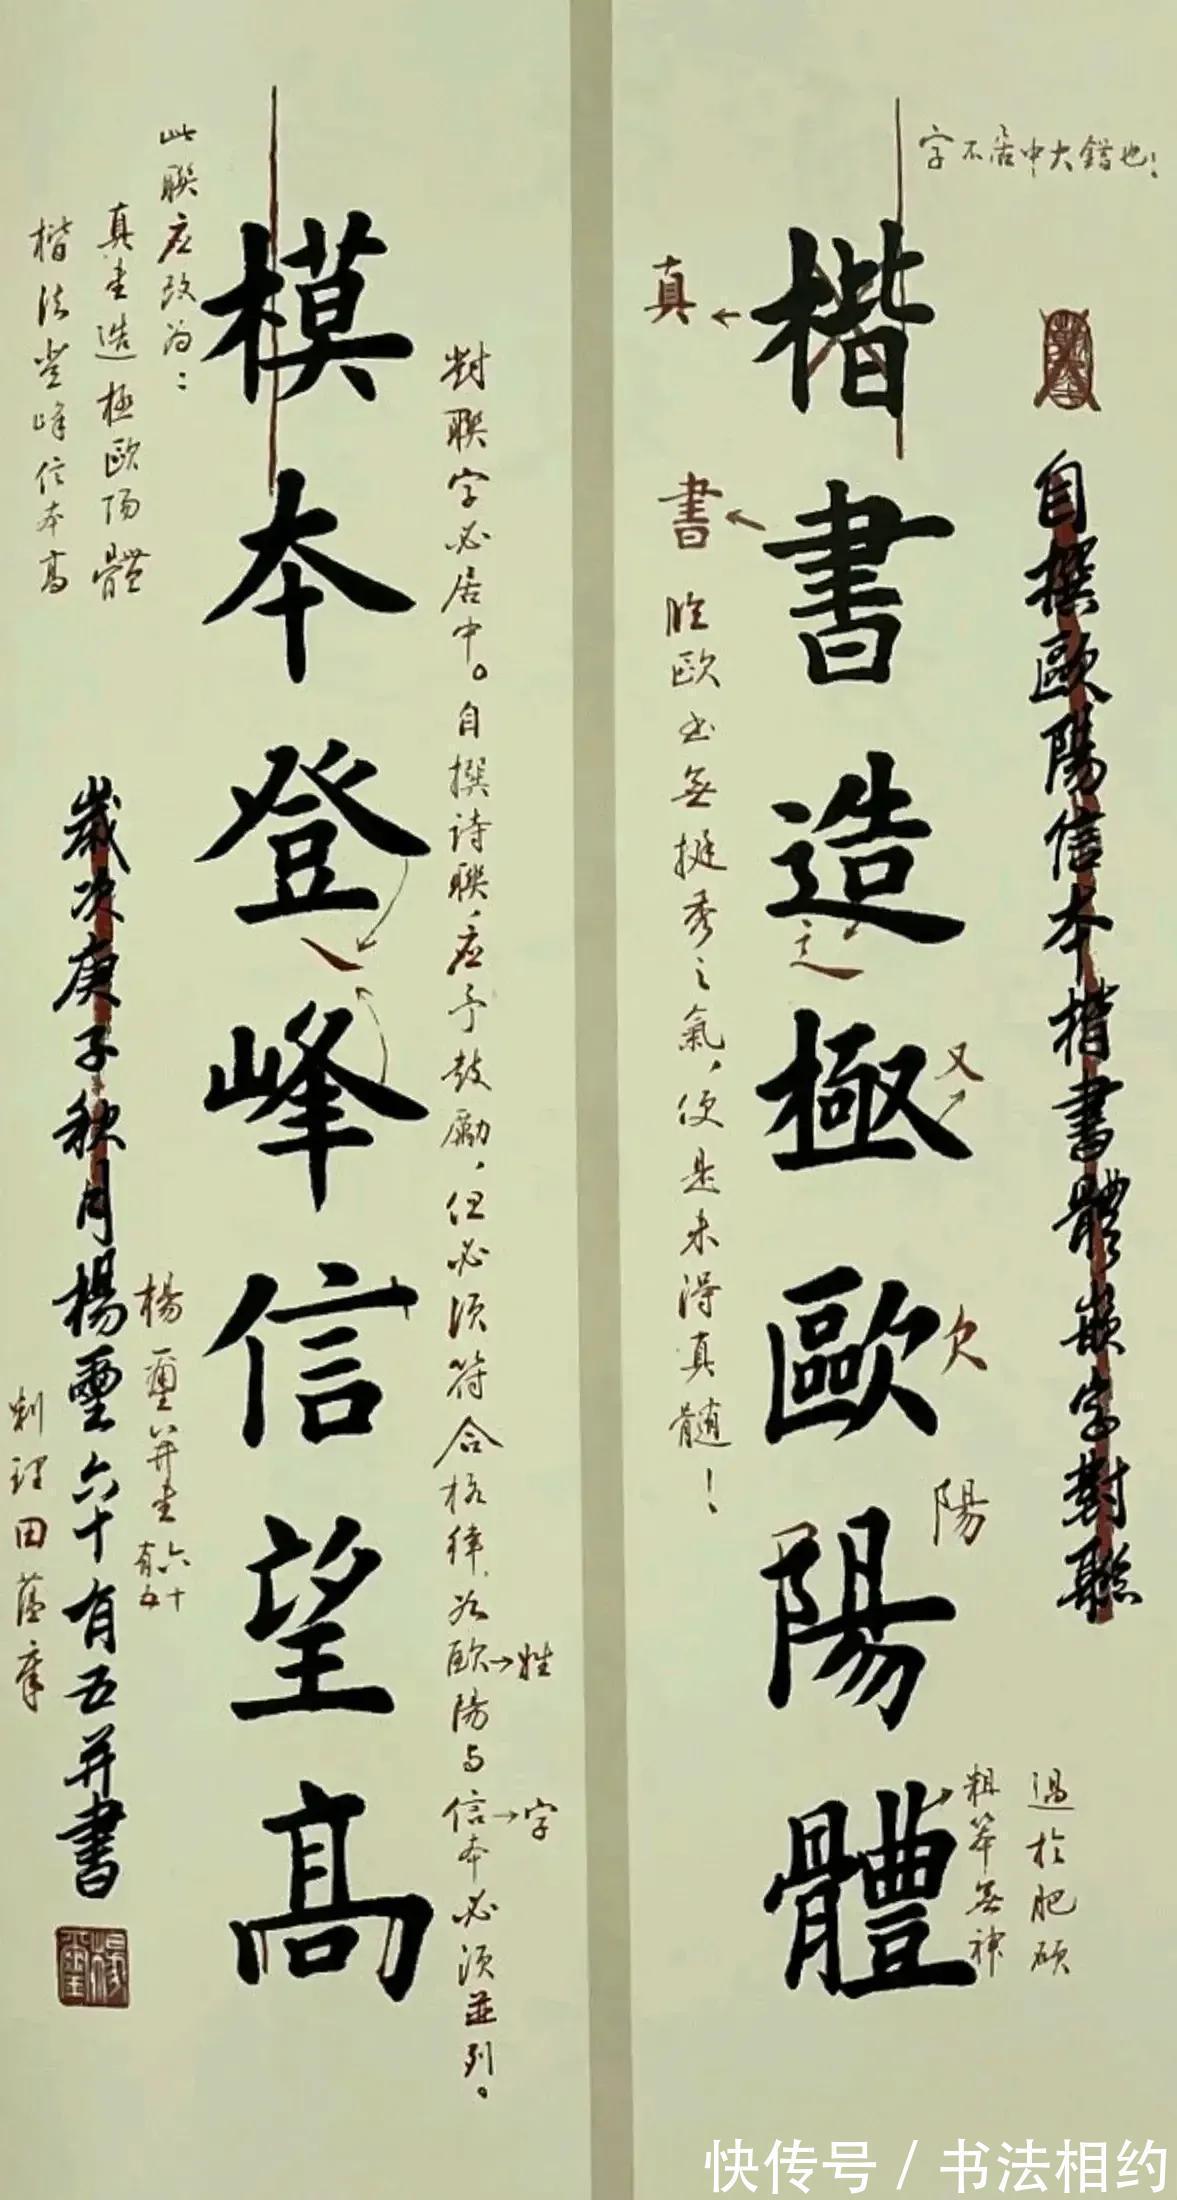 字不居中大錯也!
自撰歐陽信本楷書體嵌字對聯
楷書造極歐陽體
真
書
之
又
欠
陽
粗笨無神
過於肥碩
臨歐书無挺秀之氣,便是未得真髓!
對聯字必居中。自撰诗聯,应予鼓勵,但必须符合格律,如歐陽与信本必须並列。
姓
字
模本登峰信望高
此聯应改为:
真书造極歐陽體
楷法登峰信本高
歲次庚子秋月楊璽六十有五并書
楊璽并书
六十有五
楊璽
快传号/书法相约